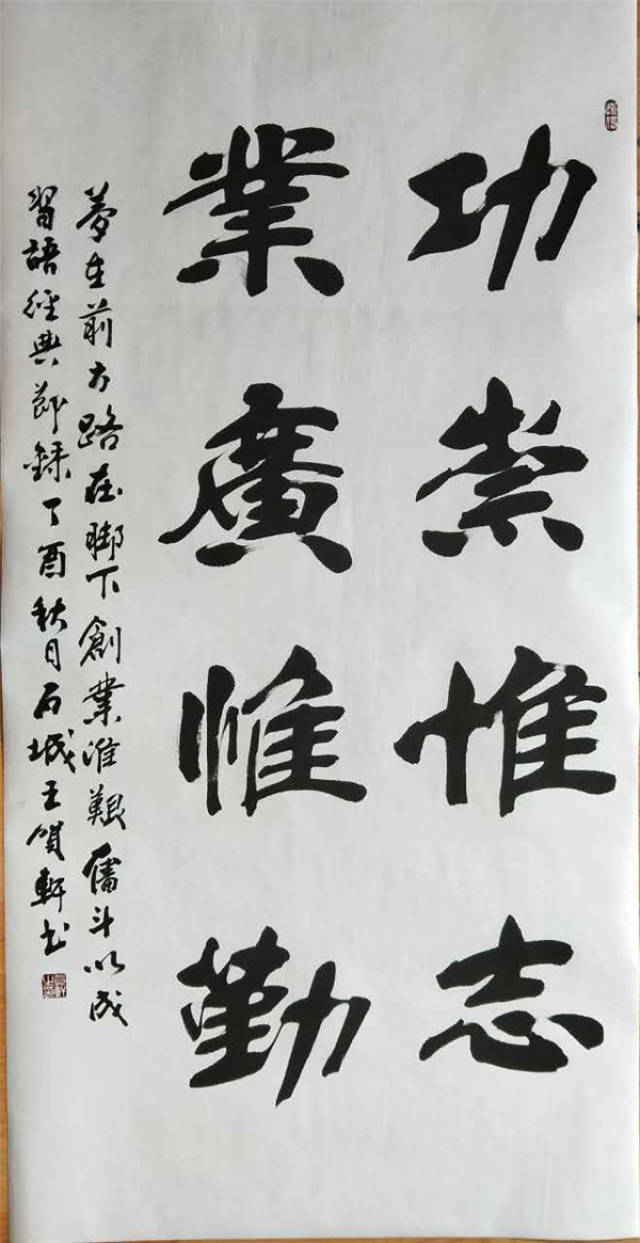 功崇惟志
業廣惟勤
夢在前方路在脚下創業維艱奮斗以成
習語經典節錄丁酉秋日石城王賀軒书